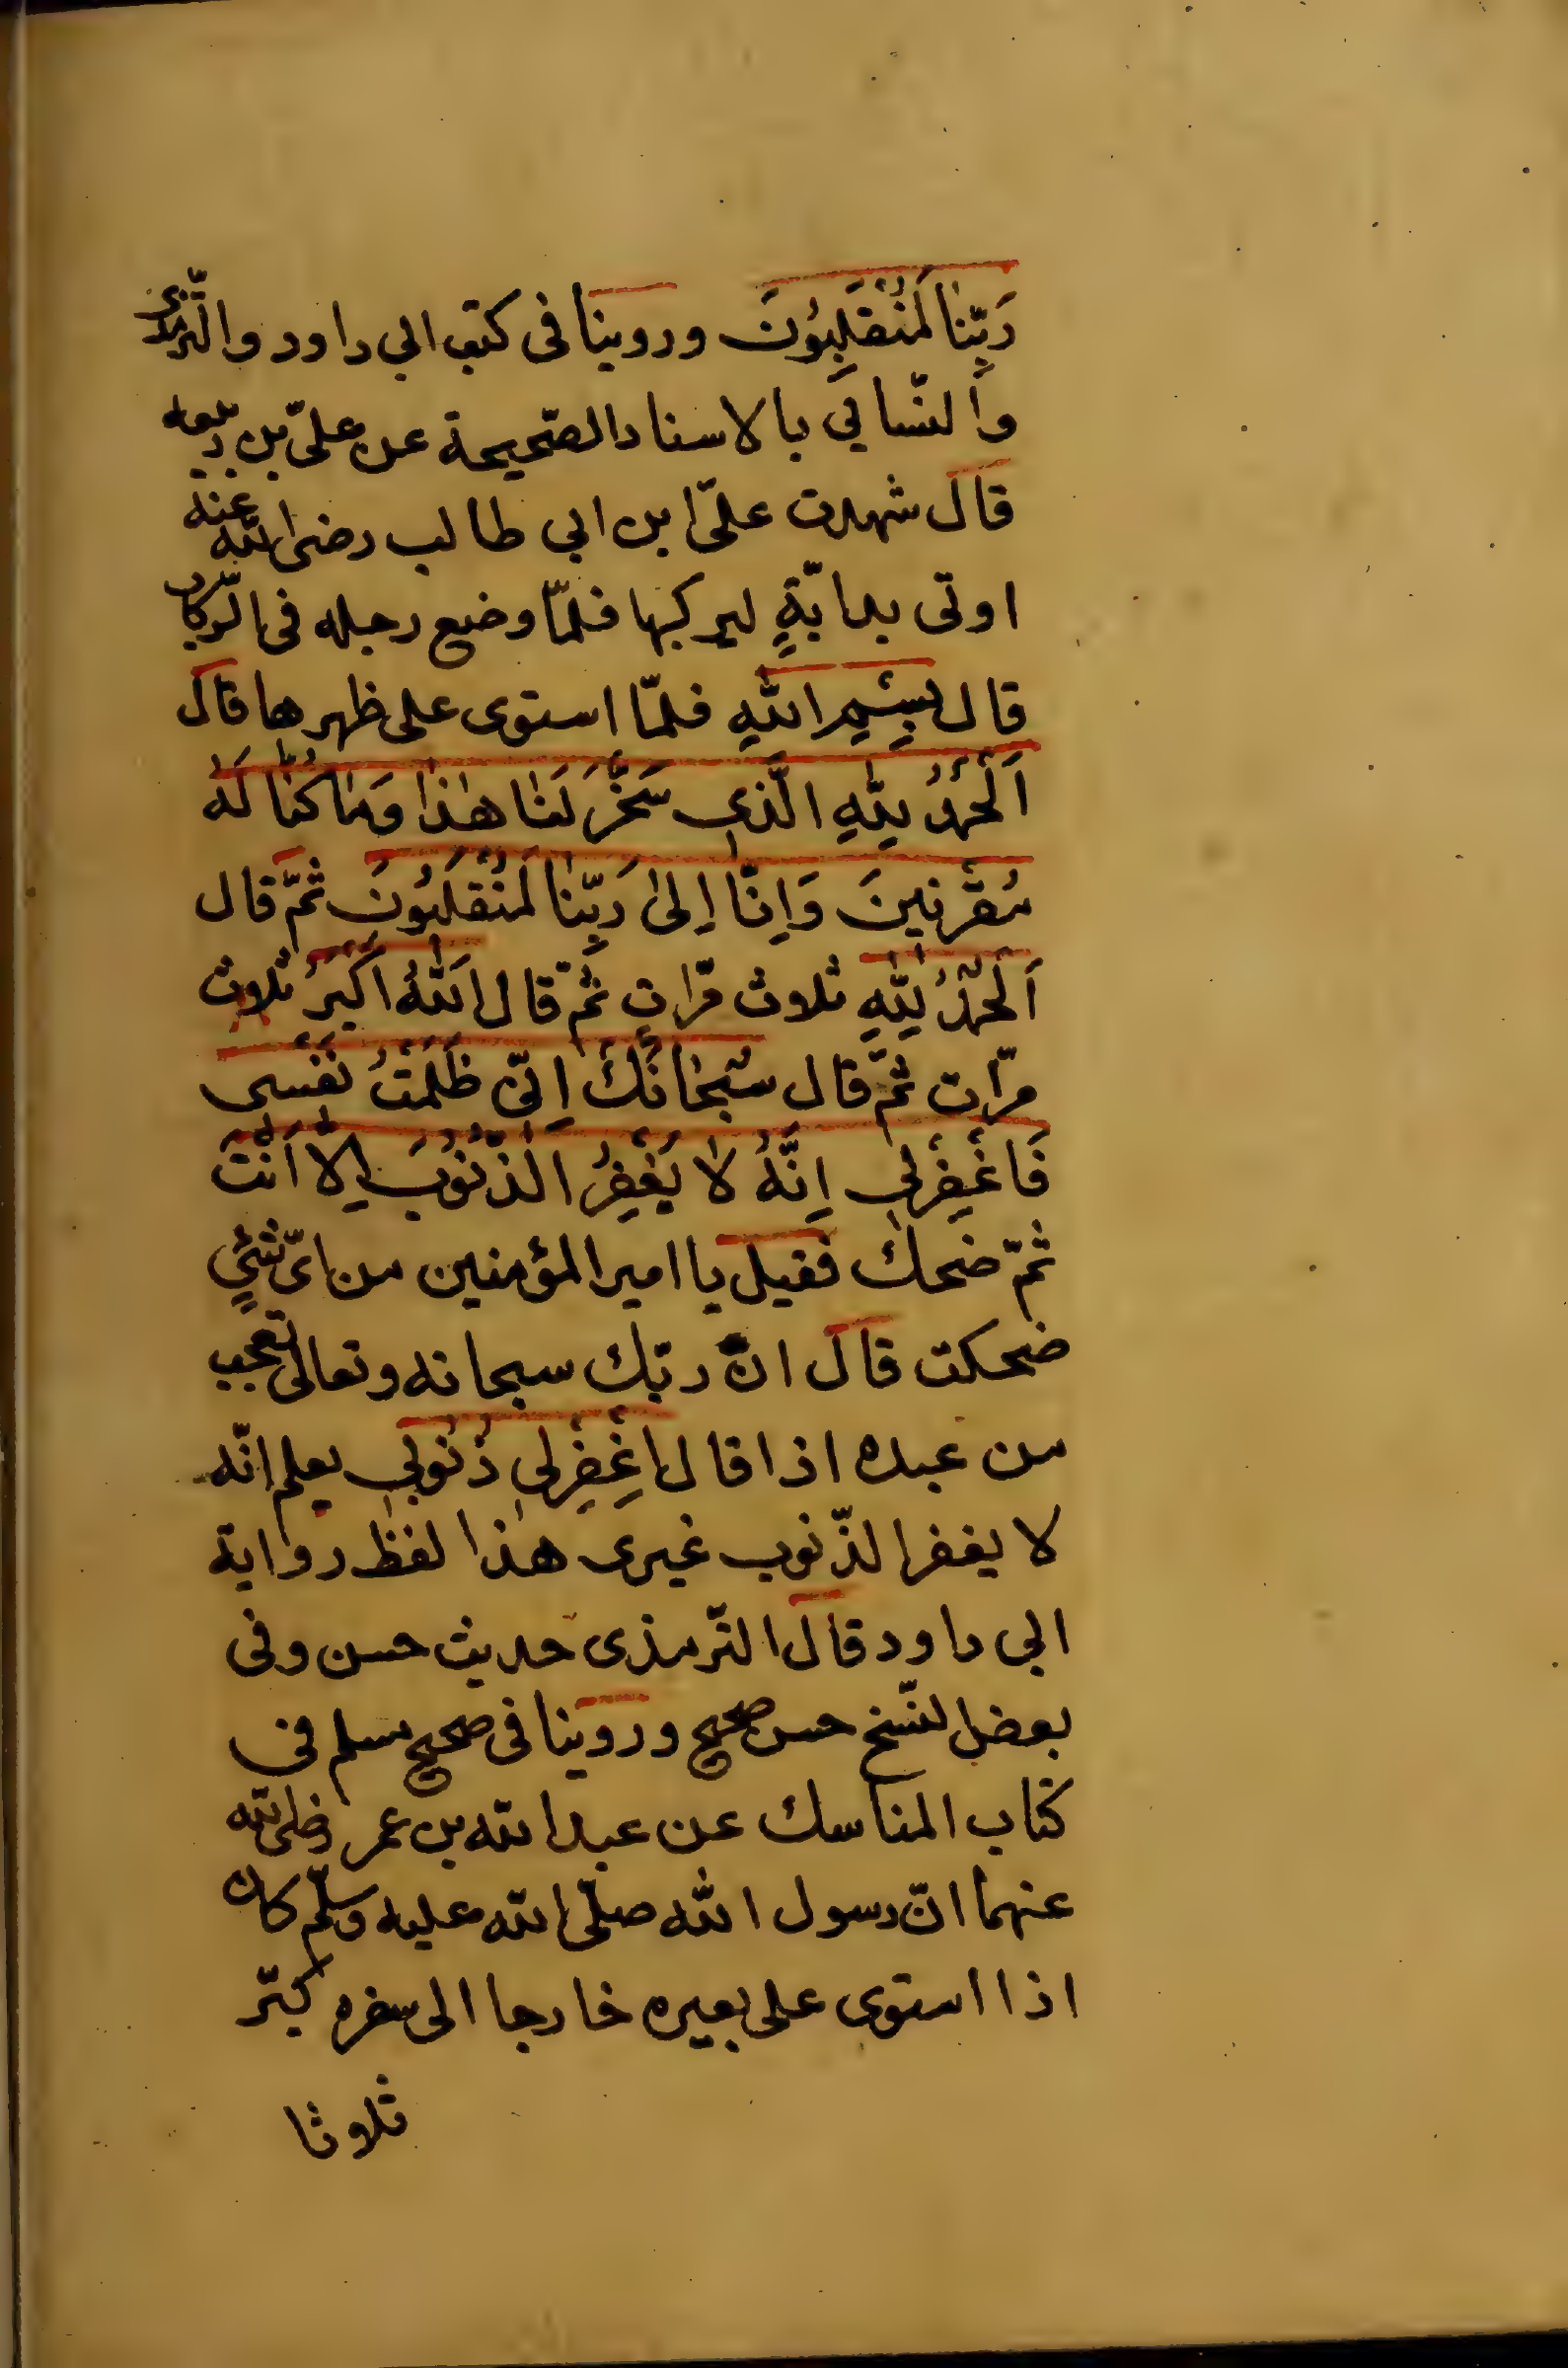 رَبِّنَا لَمُنْقَلِبُونَ وروينا فى كتب ابي داود والتّرمذى
والنّسائي بالاسناد الصّحيحة عن علىّ بن ربيعه
قال شهدت علىّ ابن ابي طالب رضى الله عنه
اوتى بدابّةٍ ليركبها فلمّا وضع رجله فى الرّكاب
قال بِسْمِ اللّٰهِ فلمّا استوى على ظهرها قال
اَلْحَمْدُ لِلّٰهِ الَّذِى سَخَّرَ لَنَا هٰذَا وَمَا كُنَّا لَهُ
مُقْرِنِينَ وَاِنَّا اِلىٰ رَبِّنَا لَمُنْقَلِبُونَ ثمّ قال
اَلْحَمْدُ لِلّٰهِ ثلاث مرّاتٍ ثمّ قال اَللّٰهُ اَكْبَرُ ثلاث
مرّات ثمّ قال سُبْحَانَكَ اِنِّى ظَلَمْتُ نَفْسِى
فَاغْفِرْلِى اِنَّهُ لَا يَغْفِرُ الذُّنُوبَ اِلَّا اَنْتَ
ثمّ ضحك فقيل يا امير المؤمنين من اىّ شئٍ
ضحكت قال انّ ربّك سبحانه وتعالى تعجب
من عبده اذا قال اغْفِرْلِى ذُنُوبِى يعلم انّه
لا يغفر الذّنوب غيرى هٰذا لفظ رواية
ابي داود قال التّرمذى حديث حسن وفى
بعض النّسخ حسن صحيح وروينا فى صحيح مسلم فى
كتاب المناسك عن عبد الله بن عمر رضى الله
عنهما انّ رسول الله صلّى الله عليه وسلّم كان
اذا استوى على بعيره خارجا الى سفره كبّر
ثلاثا